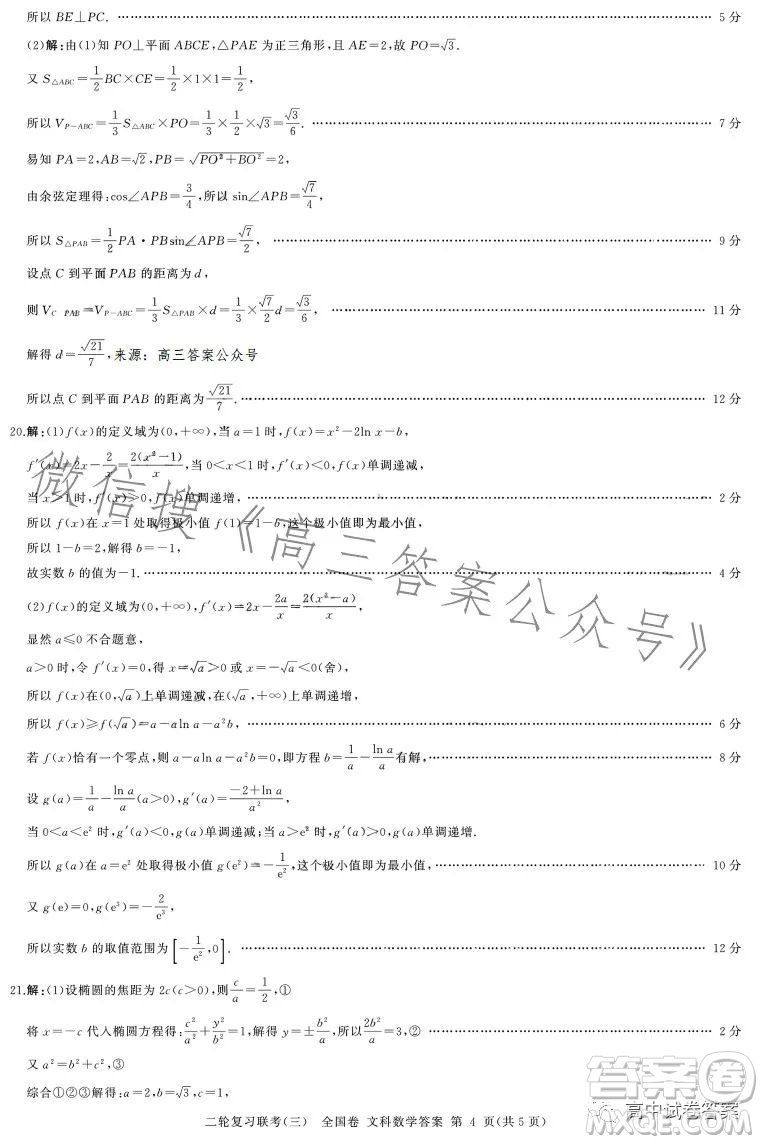 所以 BE⊥PC. …… 5 分
(2)解:由(1)知 PO⊥平面 ABCE,△PAE 为正三角形,且 AE=2,故 PO=√3.
又 S△ABC=1/2 BC×CE=1/2×1×1=1/2,
所以 V_{P-ABC}=1/3 S△ABC×PO=1/3×1/2×√3=√3/6. …… 7 分
易知 PA=2,AB=√2,PB=√(PO²+BO²)=2,
由余弦定理得:cos∠APB=3/4,所以 sin∠APB=√7/4,
所以 S△PAB=1/2 PA·PBsin∠APB=√7/2, …… 9 分
设点 C 到平面 PAB 的距离为 d,
则 V_{C-PAB}=V_{P-ABC}=1/3 S△PAB×d=1/3×√7/2 d=√3/6, …… 11 分
解得 d=√21/7, 来源:高三答案公众号
所以点 C 到平面 PAB 的距离为 √21/7. …… 12 分
20.解:(1)f(x)的定义域为(0,+∞),当 a=1 时,f(x)=x²-2ln x-b,
f′(x)=2x-2/x=2(x²-1)/x,当 0<x<1 时,f′(x)<0,f(x)单调递减,
当 x>1 时,f′(x)>0,f(x)单调递增, …… 2 分
所以 f(x)在 x=1 处取得极小值 f(1)=1-b,这个极小值即为最小值,
所以 1-b=2,解得 b=-1,
故实数 b 的值为-1. …… 4 分
(2)f(x)的定义域为(0,+∞),f′(x)=2x-2a/x=2(x²-a)/x,
显然 a≤0 不合题意,
a>0 时,令 f′(x)=0,得 x=√a>0 或 x=-√a<0(舍),
所以 f(x)在(0,√a)上单调递减,在(√a,+∞)上单调递增,
所以 f(x)≥f(√a)=a-aln a-a²b, …… 6 分
若 f(x)恰有一个零点,则 a-aln a-a²b=0,即方程 b=1/a-ln a/a 有解, …… 8 分
设 g(a)=1/a-ln a/a(a>0),g′(a)=(-2+ln a)/a²,
当 0<a<e² 时,g′(a)<0,g(a)单调递减;当 a>e² 时,g′(a)>0,g(a)单调递增.
所以 g(a)在 a=e² 处取得极小值 g(e²)=-1/e²,这个极小值即为最小值, …… 10 分
又 g(e)=0,g(e³)=-2/e³,
所以实数 b 的取值范围为[-1/e²,0]. …… 12 分
21.解:(1)设椭圆的焦距为 2c(c>0),则 c/a=1/2,①
将 x=-c 代入椭圆方程得:c²/a²+y²/b²=1,解得 y=±b²/a,所以 2b²/a=3,② …… 2 分
又 a²=b²+c²,③
综合①②③解得:a=2,b=√3,c=1,
二轮复习联考(三) 全国卷 文科数学答案 第 4 页(共 5 页)
微信搜《高三答案公众号》
答案圈
高中试卷答案